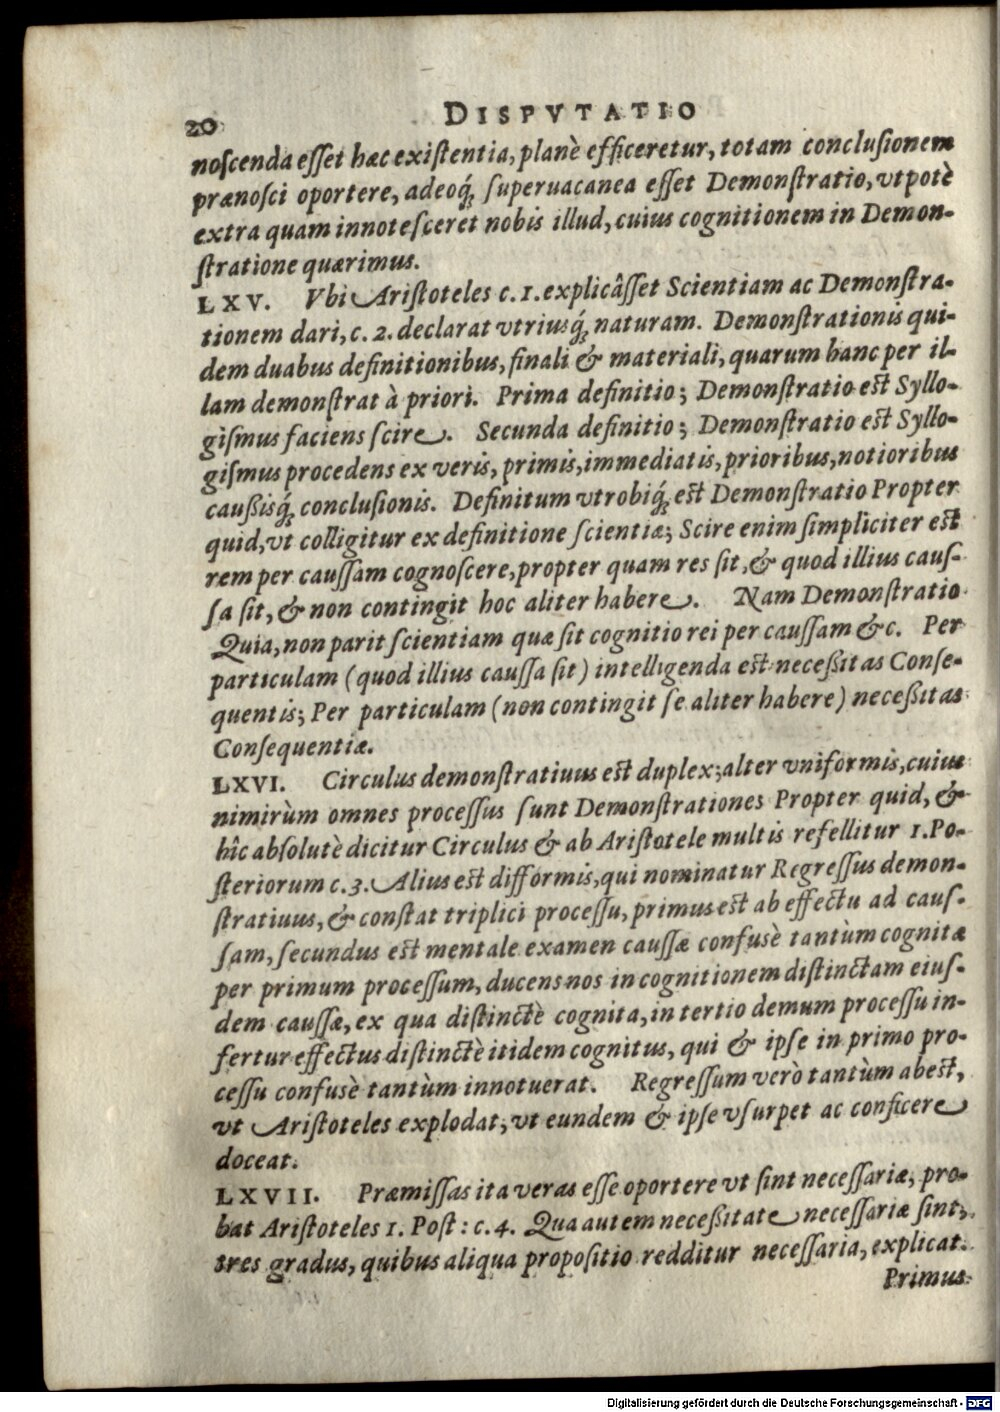 20
DISPVTATIO
noſcenda eſſet hæc exiſtentia, planè efficeretur, totam concluſionem
prænoſci oportere, adeoq́; ſuperuacanea eſſet Demonſtratio, vtpotè
extra quam innoteſceret nobis illud, cuius cognitionem in Demon-
ſtratione quærimus.
LXV. Vbi Ariſtoteles c. 1. explicâſſet Scientiam ac Demonſtra-
tionem dari, c. 2. declarat vtriusq́; naturam. Demonſtrationis qui-
dem duabus definitionibus, finali & materiali, quarum hanc per il-
lam demonſtrat à priori. Prima definitio; Demonſtratio eſt Syllo-
giſmus faciens ſcire. Secunda definitio; Demonſtratio eſt Syllo-
giſmus procedens ex veris, primis, immediatis, prioribus, notioribus
caußisq́; concluſionis. Definitum vtrobiq́; eſt Demonſtratio Propter
quid, vt colligitur ex definitione ſcientiæ; Scire enim ſimpliciter eſt
rem per cauſſam cognoſcere, propter quam res ſit, & quod illius cauſ-
ſa ſit, & non contingit hoc aliter habere. Nam Demonſtratio
Quia, non parit ſcientiam quæ ſit cognitio rei per cauſſam &c. Per
particulam (quod illius cauſſa ſit) intelligenda eſt neceßitas Conſe-
quentis; Per particulam (non contingit ſe aliter habere) neceßitas
Conſequentiæ.
LXVI. Circulus demonſtratiuus eſt duplex; alter vniformis, cuius
nimirùm omnes proceſſus ſunt Demonſtrationes Propter quid, &
hîc abſolutè dicitur Circulus & ab Ariſtotele multis refellitur 1. Po-
ſteriorum c. 3. Alius eſt difformis, qui nominatur Regreſſus demon-
ſtratiuus, & conſtat triplici proceſſu, primus eſt ab effectu ad cauſ-
ſam, ſecundus eſt mentale examen cauſſæ confusè tantùm cognitæ
per primum proceſſum, ducens nos in cognitionem diſtinctam eiuſ-
dem cauſſæ, ex qua diſtinctè cognita, in tertio demum proceſſu in-
fertur effectus diſtinctè itidem cognitus, qui & ipſe in primo pro-
ceſſu confusè tantùm innotuerat. Regreſſum verò tantùm abeſt,
vt Ariſtoteles explodat, vt eundem & ipſe vſurpet ac conficere
doceat.
LXVII. Præmiſſas ita veras eſſe oportere vt ſint neceſſariæ, pro-
bat Ariſtoteles 1. Poſt: c. 4. Qua autem neceßitate neceſſariæ ſint,
tres gradus, quibus aliqua propoſitio redditur neceſſaria, explicat.
Primus
Digitalisierung gefördert durch die Deutsche Forschungsgemeinschaft - DFG